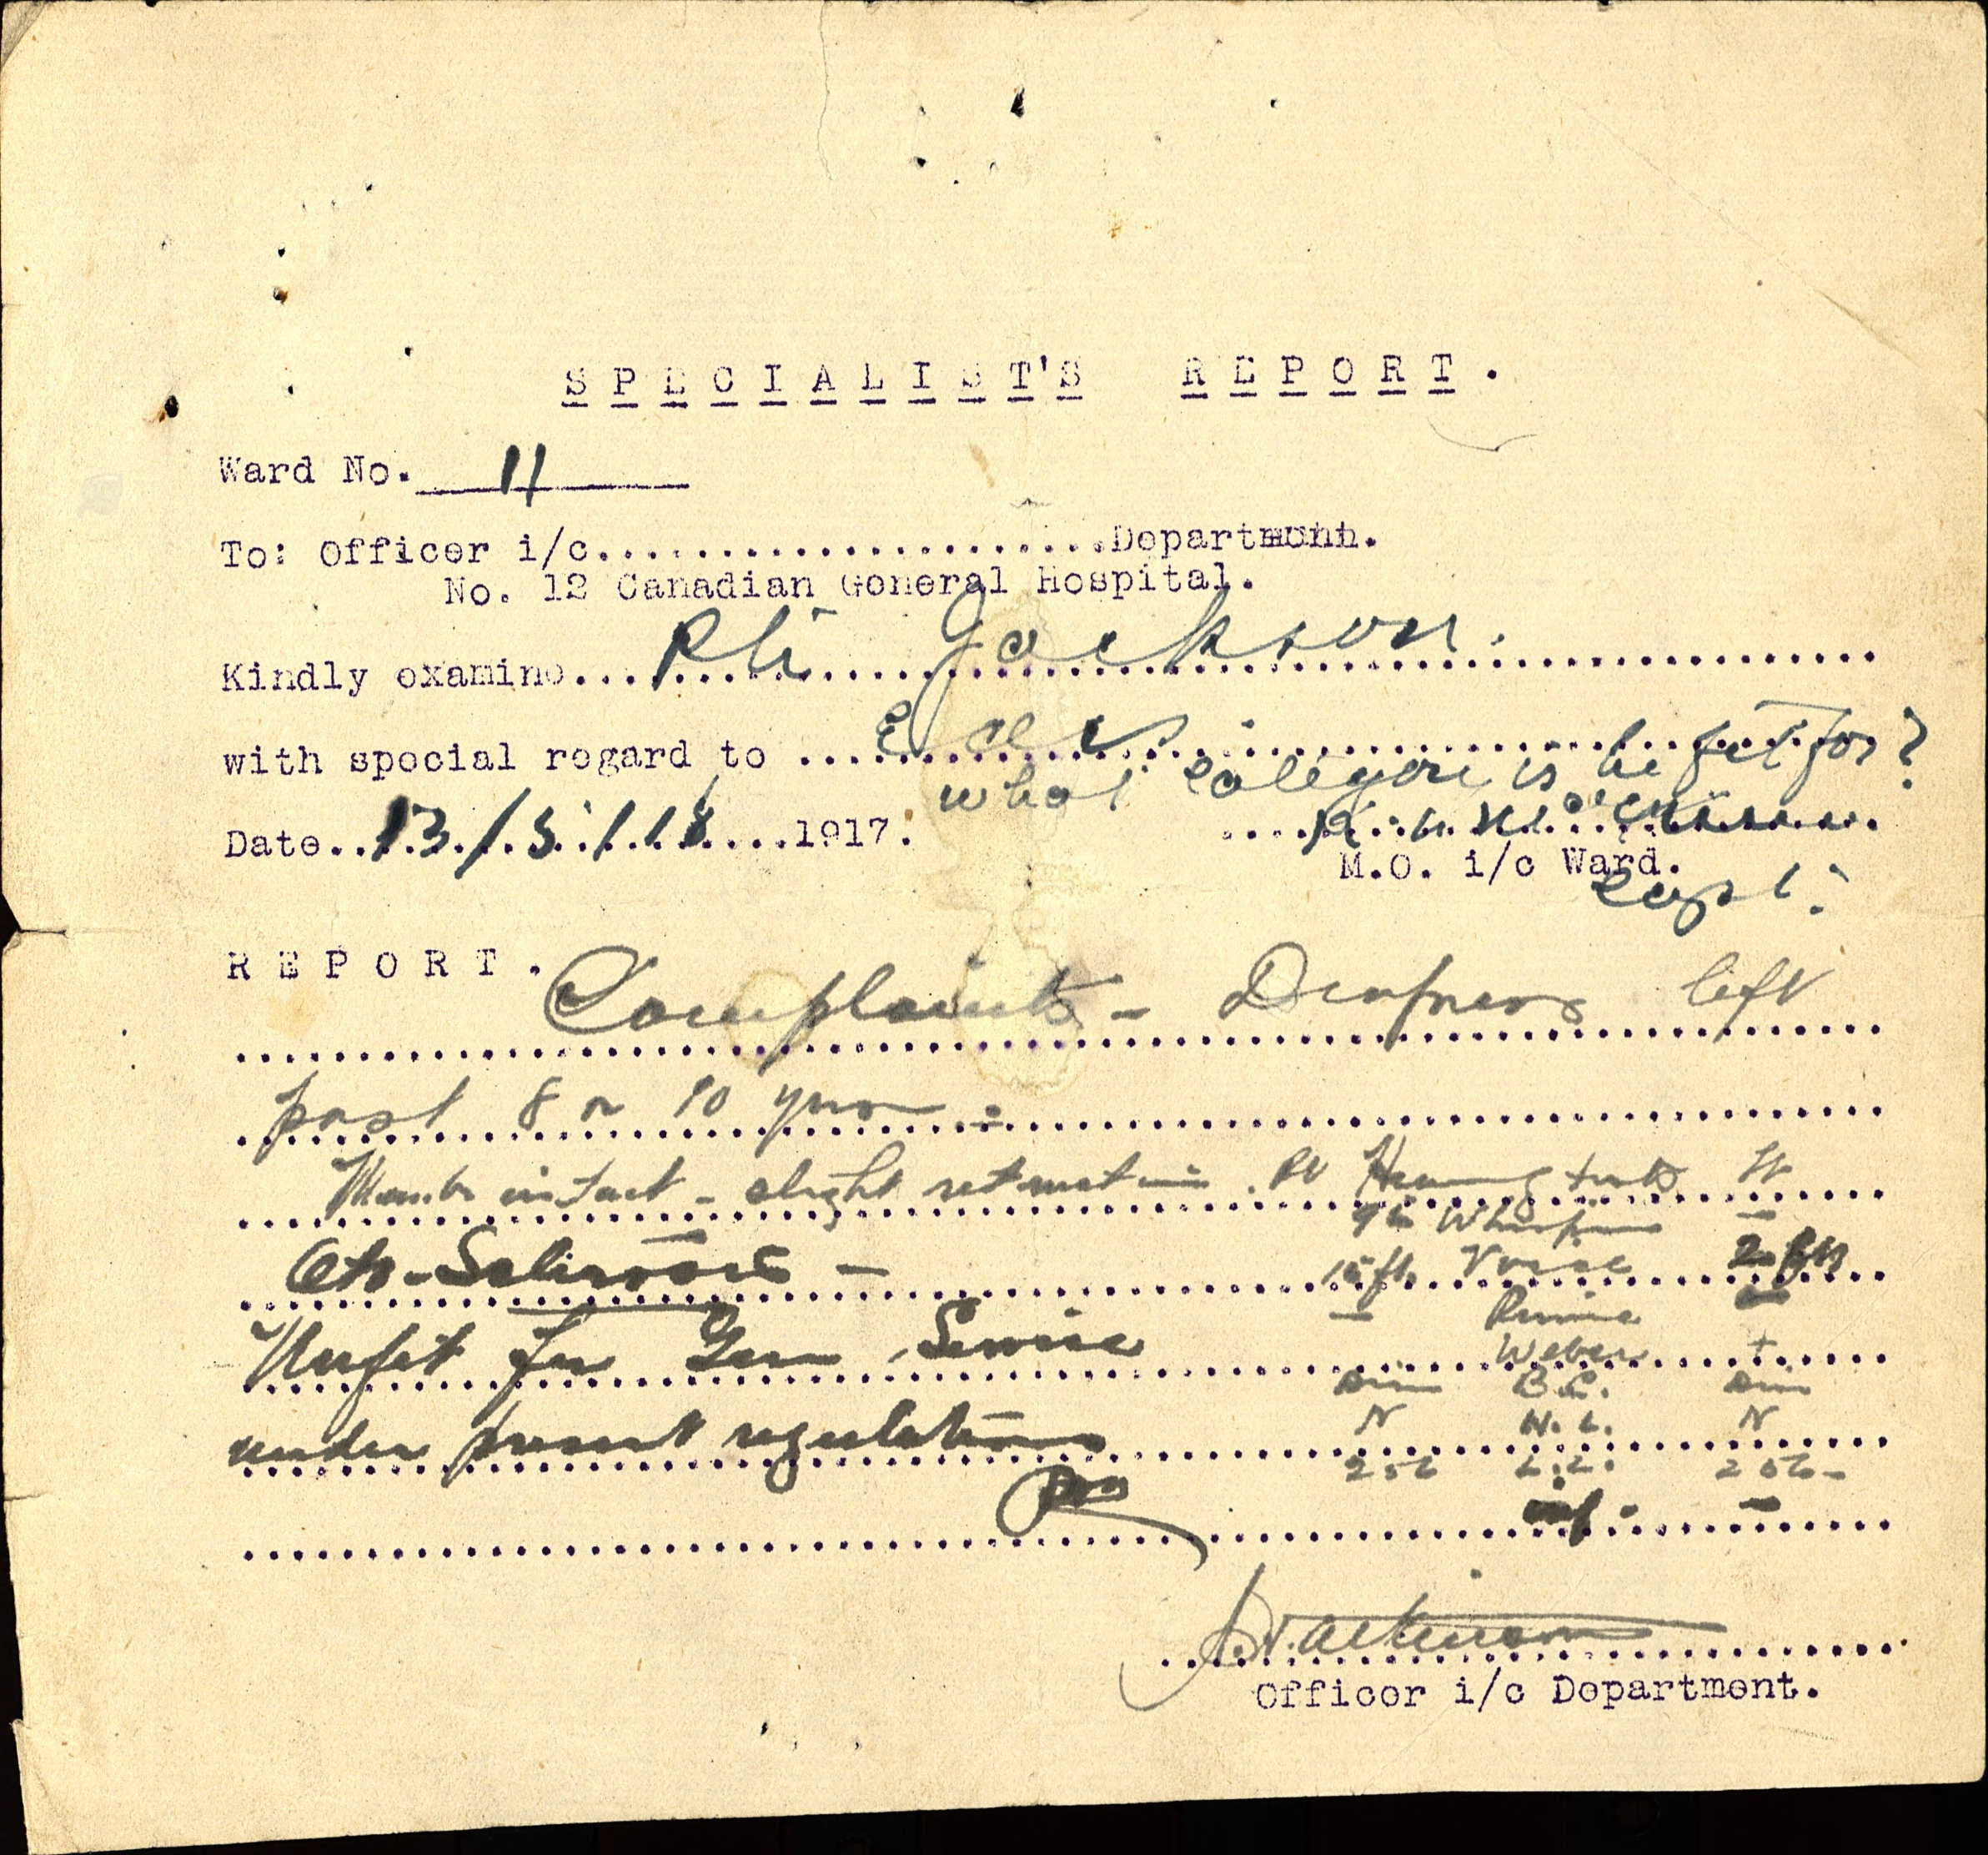 SPECIALIST'S REPORT.
Ward No. 11
To: Officer i/c......................Department.
No. 12 Canadian General Hospital.
Kindly examine... Pte Jackson.
with special regard to ... Ears.
what category is he fit for?
Date.. 13/5/18 ....1917.
M.O. i/c Ward.
Capt.
REPORT.
Complaints - Deafness left
past 8 or 10 yrs -
Memb. intact - slight retraction. Rt Hearing tests Lt
Whisper -
Oto-Sclerosis - 15 ft. Voice 2 ft
- Rinne -
Unfit for Gen. Service Weber +
Dim B.C. Dim
under present regulations N H.L. N
256 L.L. 256-
Officer i/c Department.